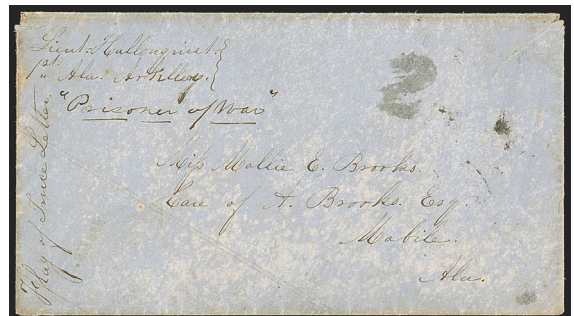 Lieut. Hallonquist
1st Ala. Artillery.
"Prisoner of War"
Flag of Truce Letter
2
Miss Mollie E. Brooks.
Care of A. Brooks. Esq.
Mobile.
Ala.